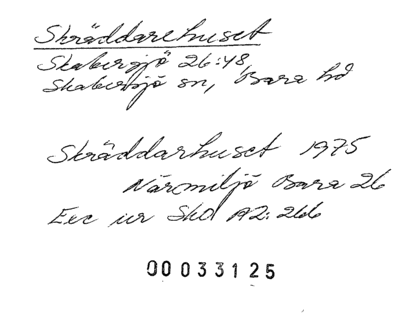 Skräddarehuset
Skabersjö 26:48
Skabersjö sn, Bara hd
Skräddarhuset 1975
Närmiljö Bara 26
Exc ur SkO A2:266
00033125